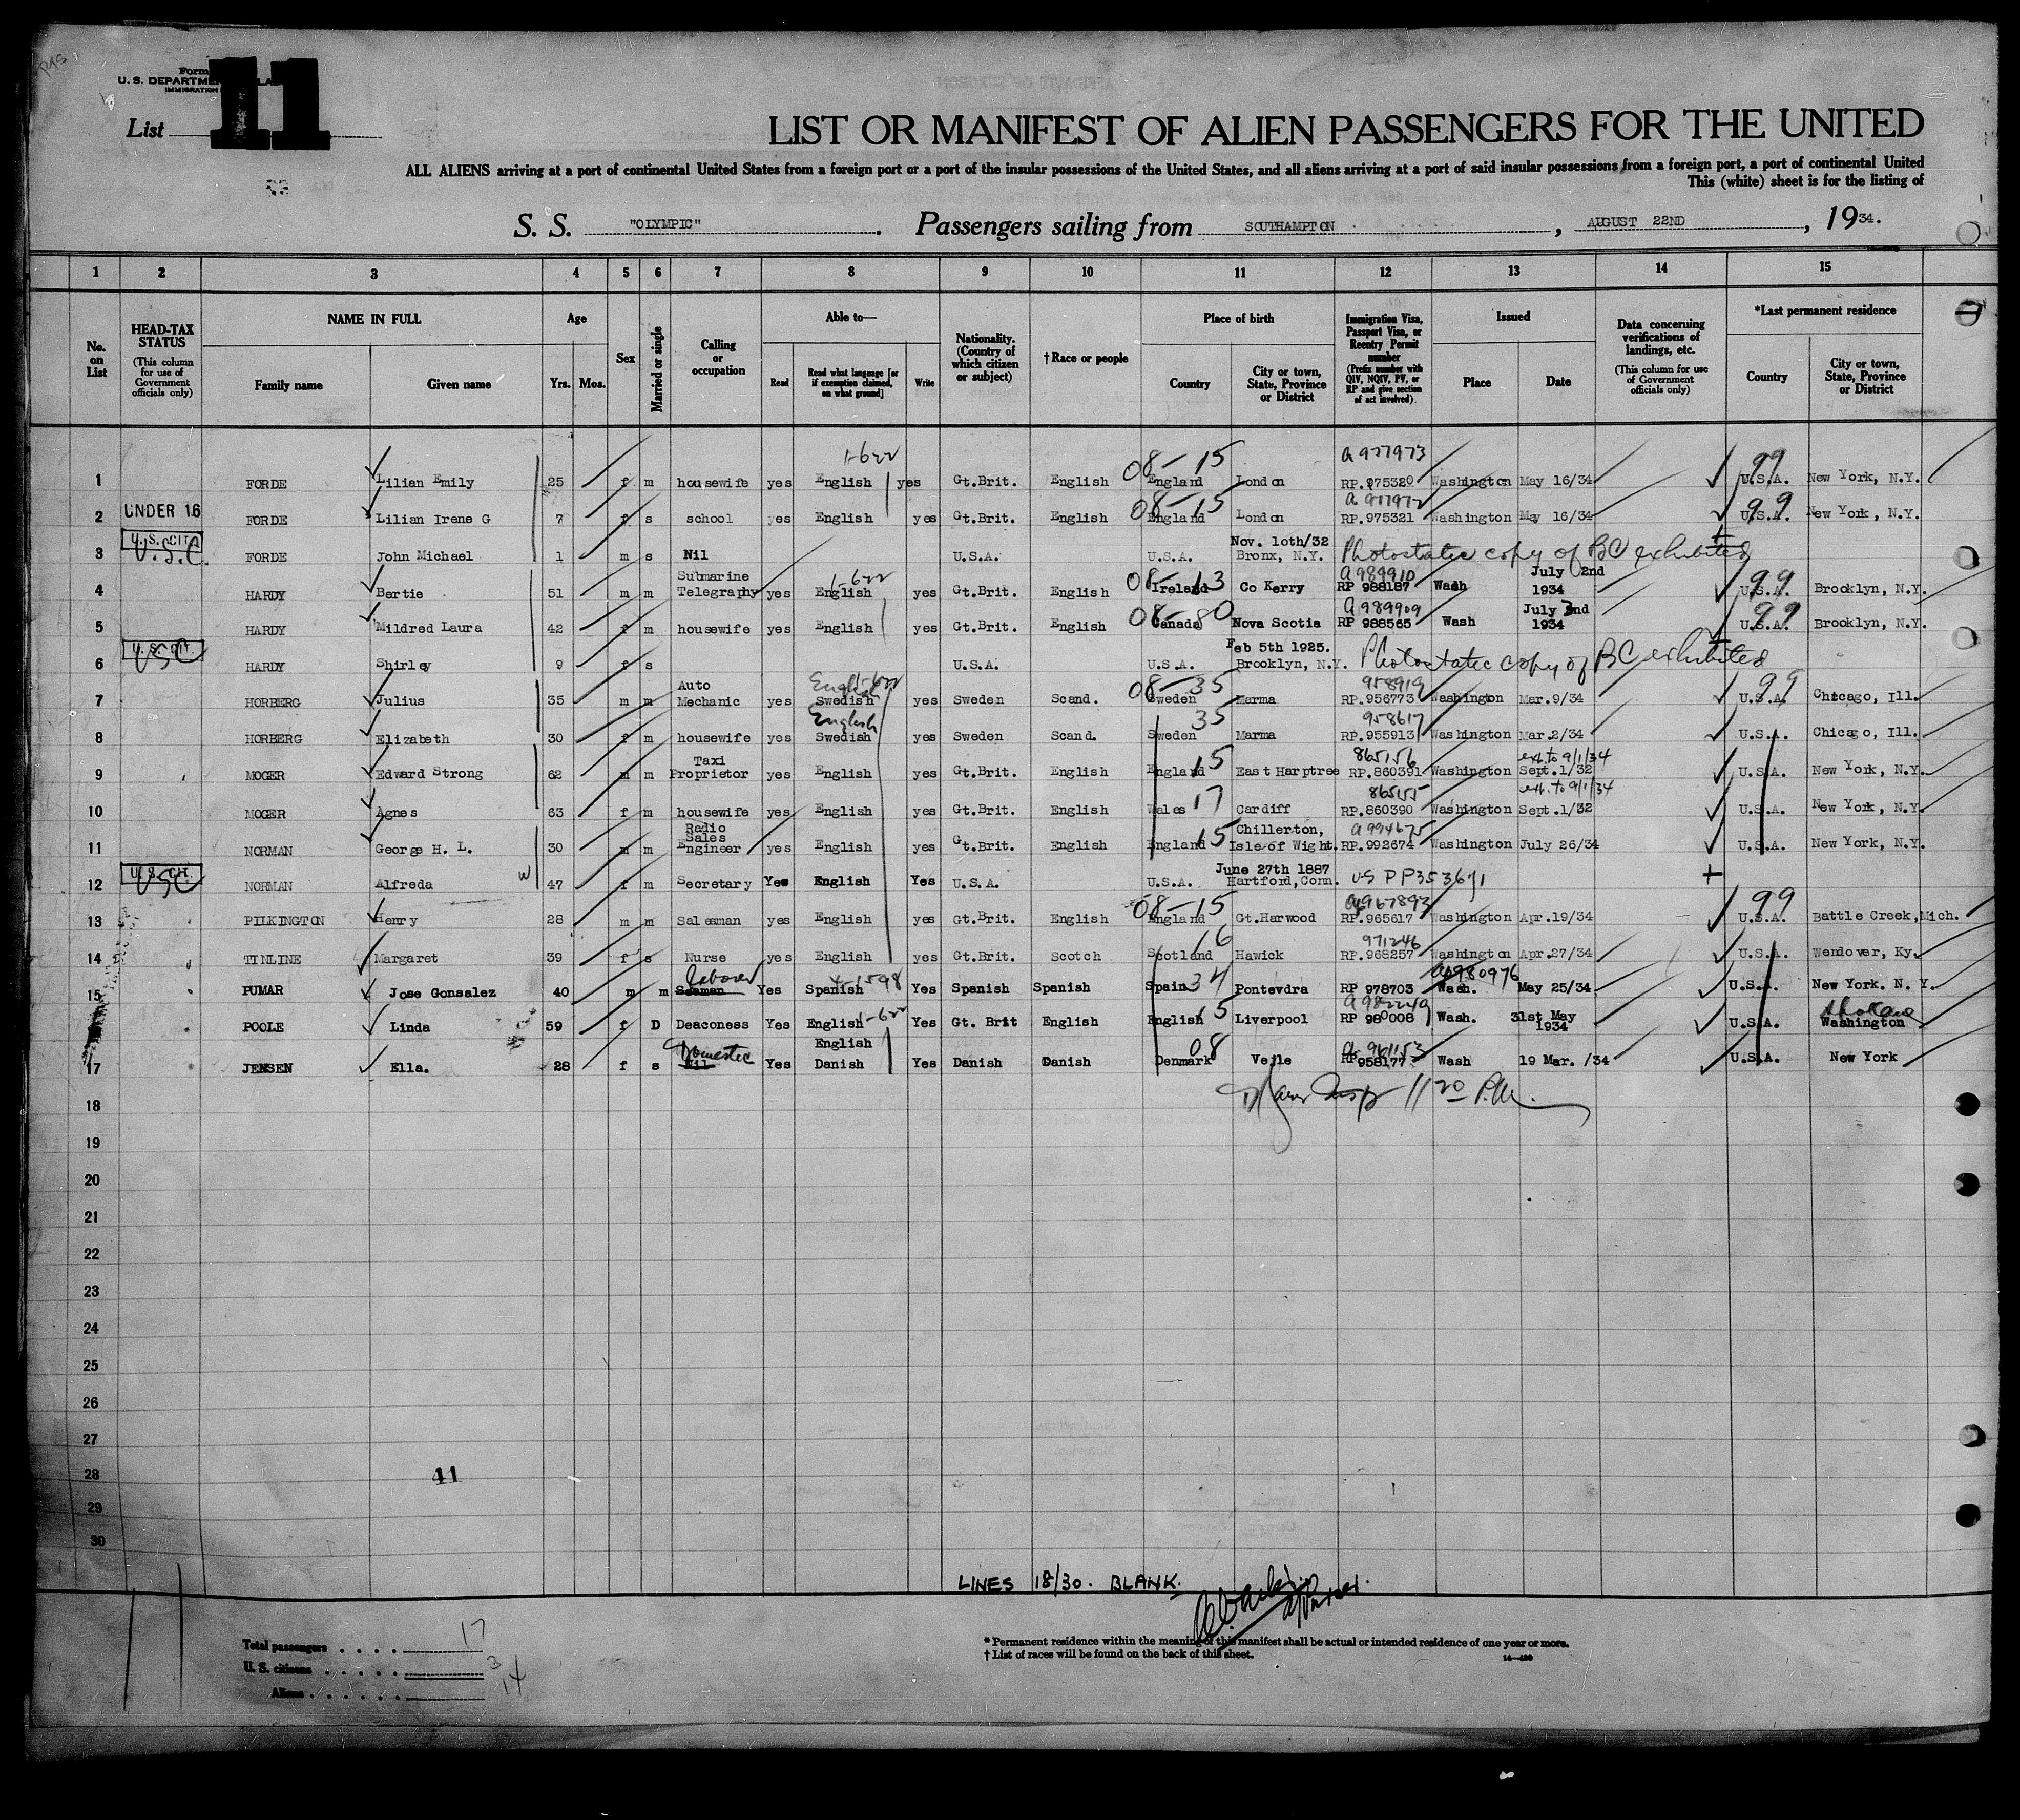 Form
U. S. DEPARTMENT
IMMIGRATION
List 11
LIST OR MANIFEST OF ALIEN PASSENGERS FOR THE UNITED
ALL ALIENS arriving at a port of continental United States from a foreign port or a port of the insular possessions of the United States, and all aliens arriving at a port of said insular possessions from a foreign port, a port of continental United
This (white) sheet is for the listing of
S. S. "OLYMPIC" . Passengers sailing from SOUTHAMPTON , AUGUST 22ND , 1934.
1 2 3 4 5 6 7 8 9 10 11 12 13 14 15
No. on List
HEAD-TAX STATUS
(This column for use of Government officials only)
NAME IN FULL
Family name Given name
Age
Yrs. Mos.
Sex
Married or single
Calling or occupation
Able to—
Read
Read what language [or if exemption claimed, on what ground]
Write
Nationality. (Country of which citizen or subject)
† Race or people
Place of birth
Country
City or town, State, Province or District
Immigration Visa, Passport Visa, or Reentry Permit number
(Prefix number with QIV, NQIV, PV, or RP and give section of act involved)
Issued
Place Date
Data concerning verifications of landings, etc.
(This column for use of Government officials only)
*Last permanent residence
Country
City or town, State, Province or District
1-622 08-15 a 977973 99
1 FORDE Lilian Emily 25 f m housewife yes English yes Gt.Brit. English England London RP.975320 Washington May 16/34 U.S.A. New York, N.Y.
UNDER 16 08-15 a 977972 99
2 FORDE Lilian Irene G 7 f s school yes English yes Gt.Brit. English England London RP.975321 Washington May 16/34 U.S.A. New York, N.Y.
U. S. CIT. U.S.C. Nov. 10th/32
3 FORDE John Michael 1 m s Nil U.S.A. U.S.A. Bronx, N.Y. Photostatic copy of BC exhibited
Submarine 1-622 08-13 a 989910 July 2nd 99
4 HARDY Bertie 51 m m Telegraphy yes English yes Gt.Brit. English Ireland Co Kerry RP 988187 Wash 1934 U.S.A. Brooklyn, N.Y.
08-80 a 989909 July 3nd 99
5 HARDY Mildred Laura 42 f m housewife yes English yes Gt.Brit. English Canada Nova Scotia RP 988565 Wash 1934 U.S.A. Brooklyn, N.Y.
U. S. CIT. USC Feb 5th 1925.
6 HARDY Shirley 9 f s U.S.A. U.S.A. Brooklyn, N.Y. Photostatic copy of BC exhibited
Auto English 1-622 08-35 958919 99
7 HORBERG Julius 35 m m Mechanic yes Swedish yes Sweden Scand. Sweden Marma RP.956773 Washington Mar.9/34 U.S.A. Chicago, Ill.
English 35 958617
8 HORBERG Elizabeth 30 f m housewife yes Swedish yes Sweden Scand. Sweden Marma RP.955913 Washington Mar.2/34 U.S.A. Chicago, Ill.
Taxi 15 865156 ext. to 9/1/34
9 MOGER Edward Strong 62 m m Proprietor yes English yes Gt.Brit. English England East Harptree RP.860391 Washington Sept.1/32 U.S.A. New York, N.Y.
17 865155 ext. to 9/1/34
10 MOGER Agnes 63 f m housewife yes English yes Gt.Brit. English Wales Cardiff RP.860390 Washington Sept.1/32 U.S.A. New York, N.Y.
Radio Sales 15 Chillerton, a 994675
11 NORMAN George H. L. 30 m m Engineer yes English yes Gt.Brit. English England Isle of Wight. RP.992674 Washington July 26/34 U.S.A. New York, N.Y.
U. S. CIT. USC W June 27th 1887
12 NORMAN Alfreda 47 f m Secretary Yes English Yes U.S.A. U.S.A. Hartford, Conn. US PP353671
08-15 a967893 99
13 PILKINGTON Henry 28 m m Salesman yes English yes Gt.Brit. English England Gt.Harwood RP.965617 Washington Apr.19/34 U.S.A. Battle Creek, Mich.
16 971246
14 TINLINE Margaret 39 f s Nurse yes English yes Gt.Brit. Scotch Scotland Hawick RP.968257 Washington Apr.27/34 U.S.A. Wendover, Ky.
laborer 4-1598 34 a980976
15 PUMAR Jose Gonsalez 40 m m Seaman Yes Spanish Yes Spanish Spanish Spain Pontevdra RP 978703 Wash. May 25/34 U.S.A. New York. N. Y.
1-622 15 a 982249 Spokane
16 POOLE Linda 59 f D Deaconess Yes English Yes Gt. Brit English English Liverpool RP 980008 Wash. 31st May 1934 U.S.A. Washington
Domestic English 08 a 961153
17 JENSEN Ella. 28 f s Nil Yes Danish Yes Danish Danish Denmark Vejle RP 958177 Wash 19 Mar. /34 U.S.A. New York
18 1120 P.M.
19
20
21
22
23
24
25
26
27
28 41
29
30
LINES 18/30. BLANK.
Total passengers . . . . 17
U. S. citizens . . . . . 3
Aliens . . . . . . 14
* Permanent residence within the meaning of this manifest shall be actual or intended residence of one year or more.
† List of races will be found on the back of this sheet.
14—420